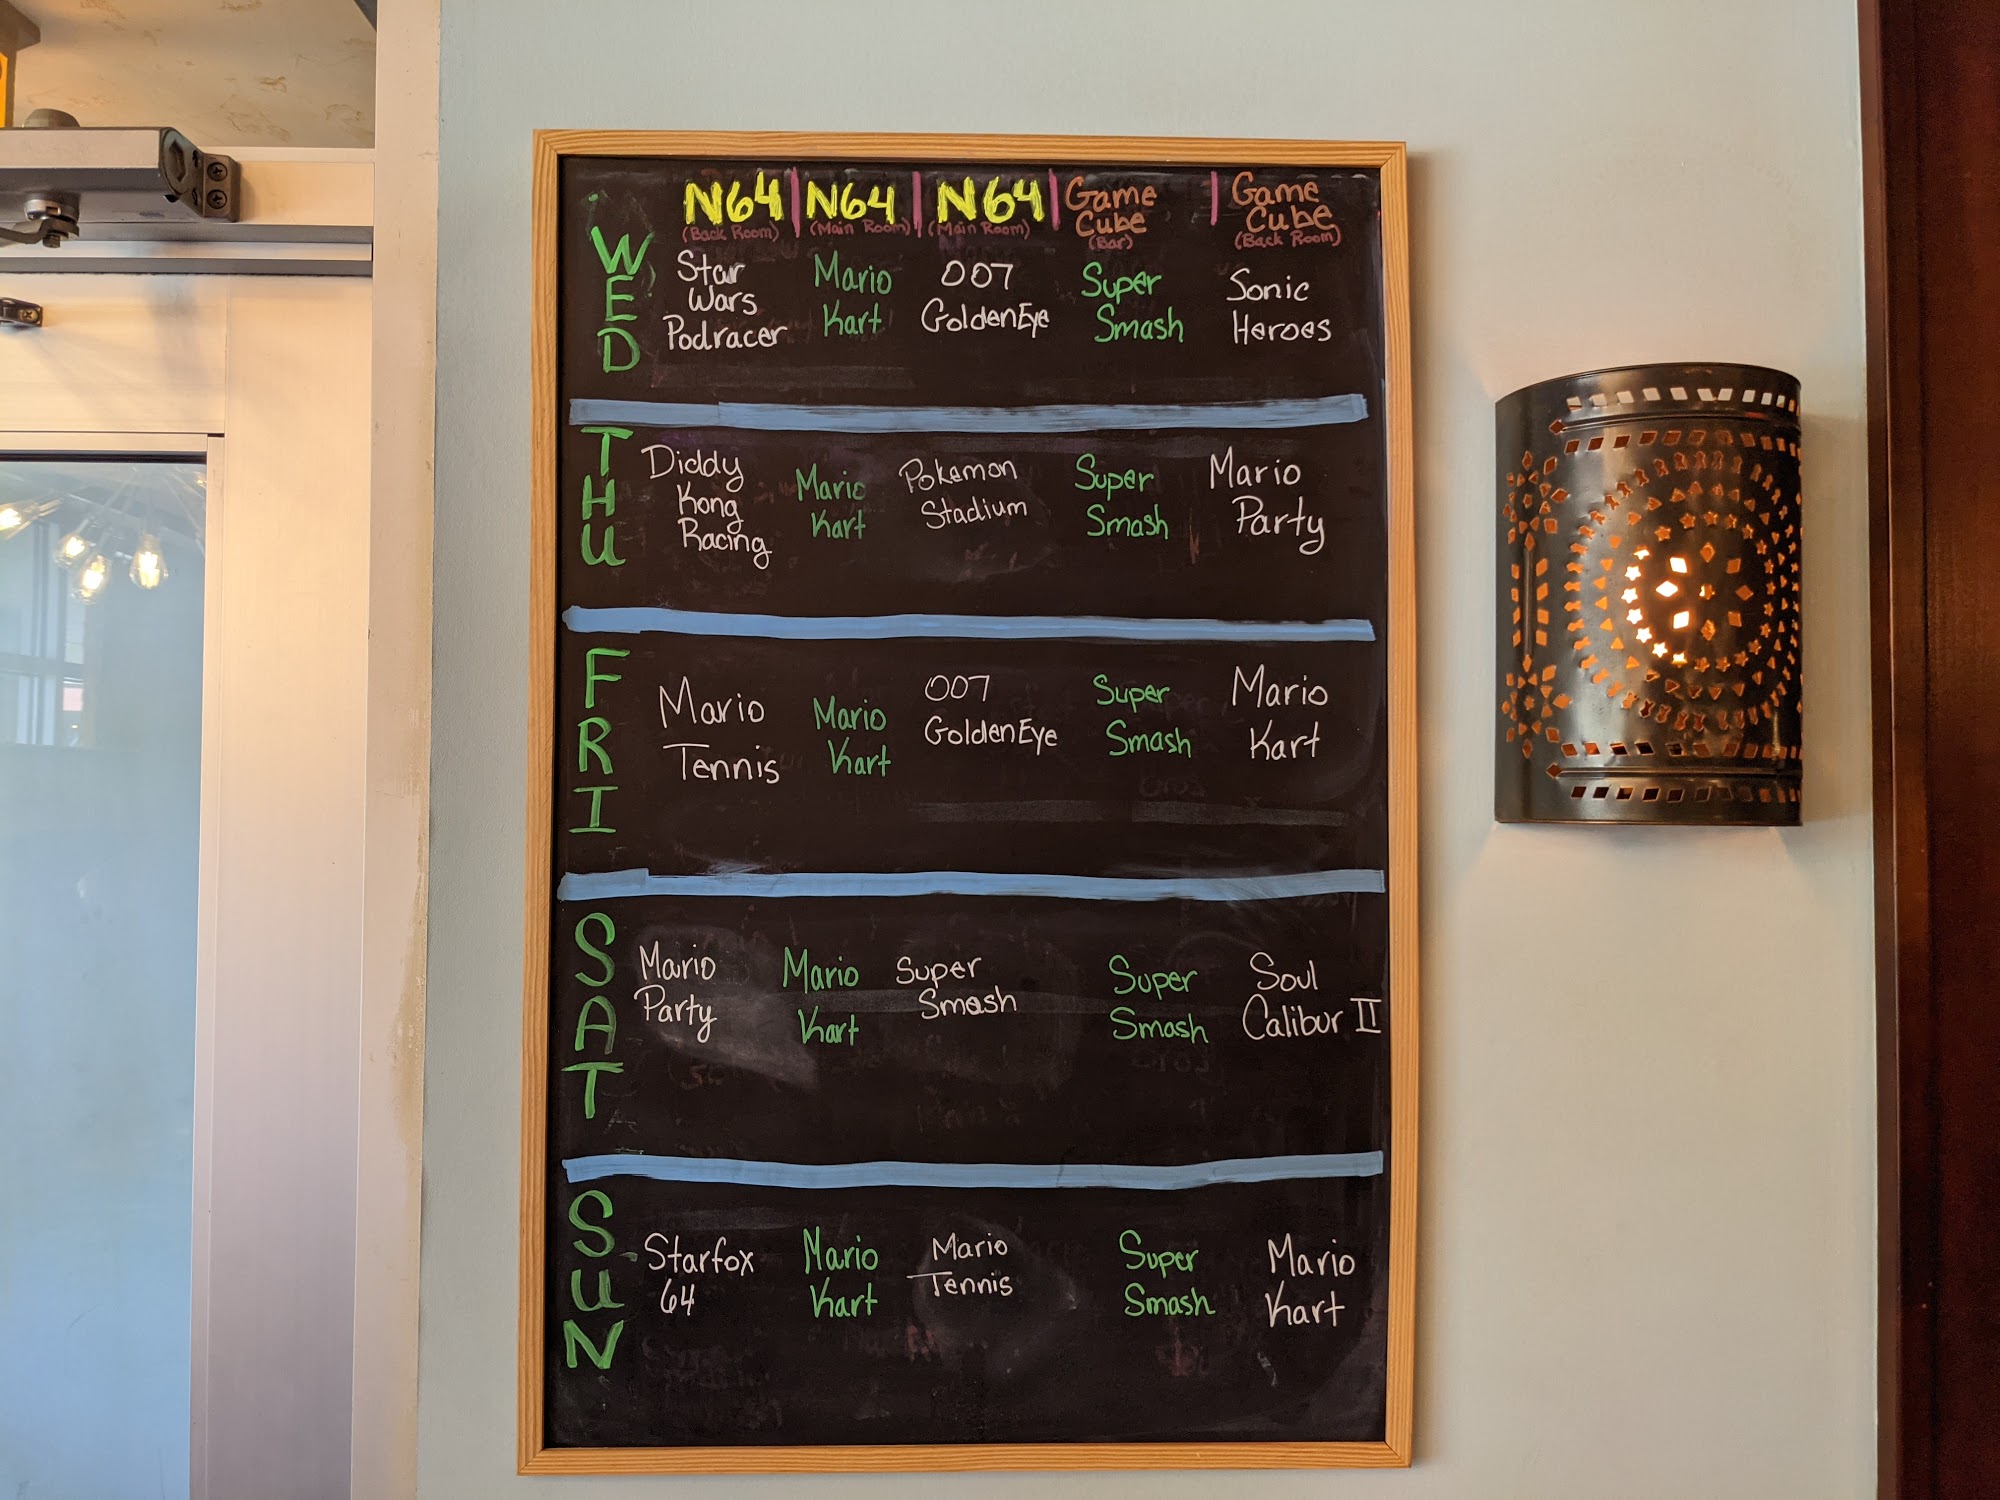 N64 N64 N64 Game Cube Game Cube
(Back Room) (Main Room) (Main Room) (Bar) (Back Room)
WED
Star Wars Podracer
Mario Kart
007 GoldenEye
Super Smash
Sonic Heroes
THU
Diddy Kong Racing
Mario Kart
Pokemon Stadium
Super Smash
Mario Party
FRI
Mario Tennis
Mario Kart
007 GoldenEye
Super Smash
Mario Kart
SAT
Mario Party
Mario Kart
Super Smash
Super Smash
Soul Calibur II
SUN
Starfox 64
Mario Kart
Mario Tennis
Super Smash
Mario Kart